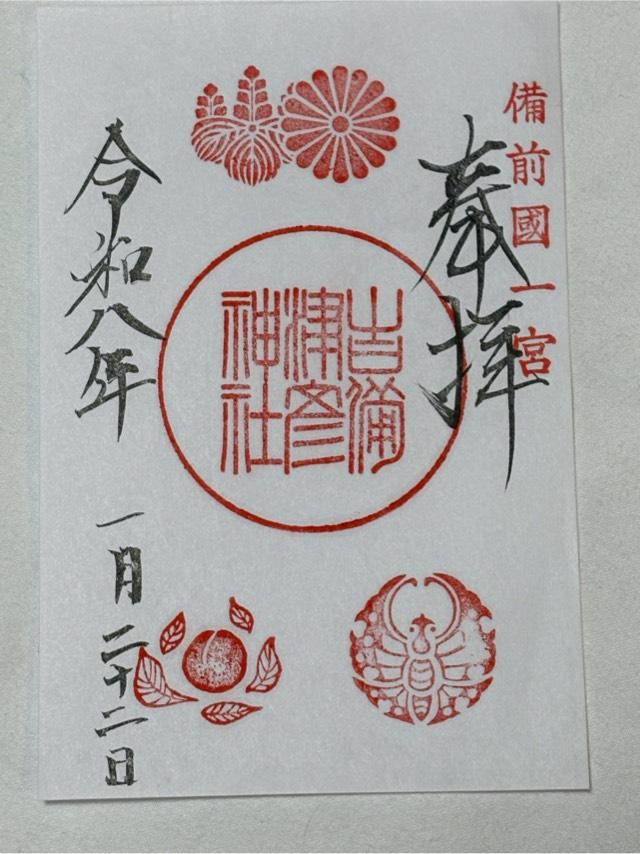 備前國一宮
奉拝
吉備
津彦
神社
令和八年
一月二十二日